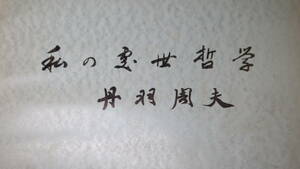 私の処世哲学
丹羽周夫